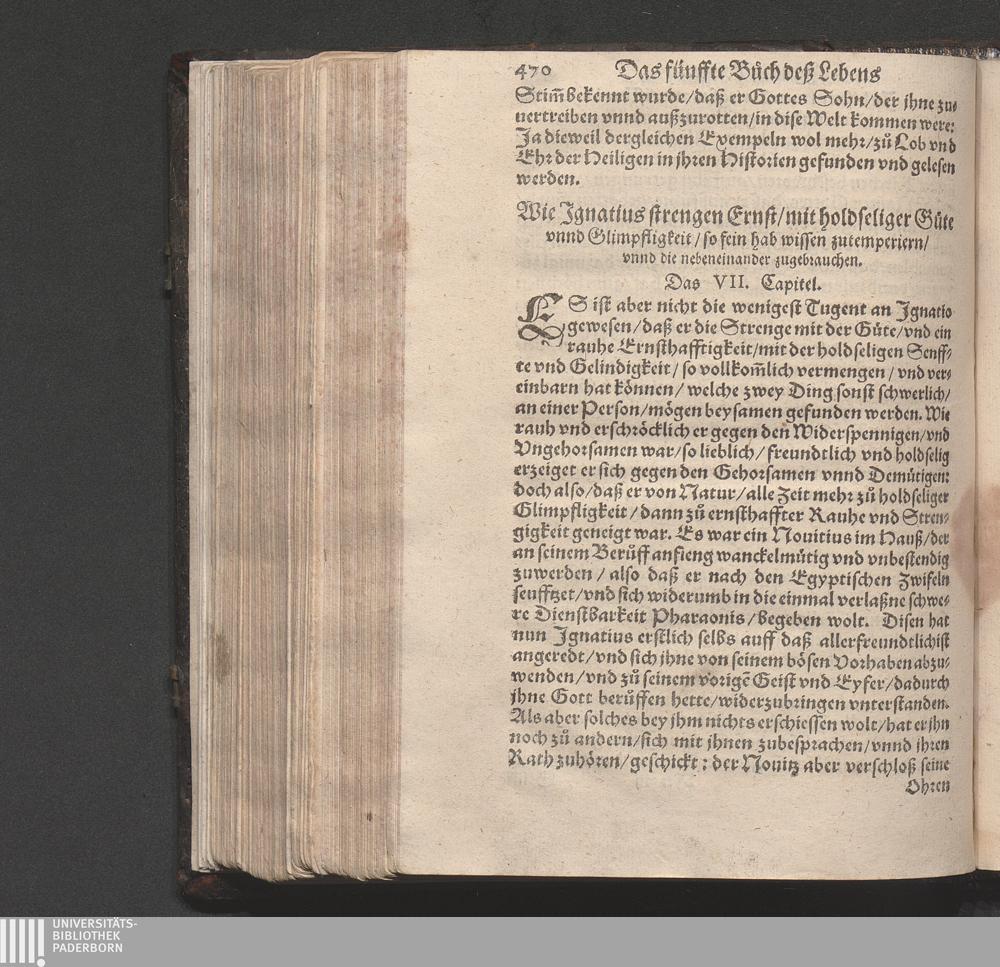 470 Das fünffte Bůch deß Lebens
Stim̃ bekennt wurde/daß er Gottes Sohn/der jhne zu-
uertreiben vnnd außzurotten/in dise Welt kommen were:
Ja dieweil dergleichen Exempeln wol mehr/zů Lob vnd
Ehr der Heiligen in jhren Historien gefunden vnd gelesen
werden.
Wie Ignatius strengen Ernst/mit holdseliger Güte
vnnd Glimpfligkeit/so fein hab wissen zutemperiern/
vnnd die nebeneinander zugebrauchen.
Das VII. Capitel.
ES ist aber nicht die wenigest Tugent an Ignatio
gewesen/daß er die Strenge mit der Güte/vnd ein
rauhe Ernsthafftigkeit/mit der holdseligen Senff-
te vnd Gelindigkeit/so vollkom̃lich vermengen/vnd ver-
einbarn hat können/welche zwey Ding sonst schwerlich/
an einer Person/mögen beysamen gefunden werden. Wie
rauh vnd erschröcklich er gegen den Widerspennigen/vnd
Vngehorsamen war/so lieblich/freundtlich vnd holdselig
erzeiget er sich gegen den Gehorsamen vnnd Demütigen:
doch also/daß er von Natur/alle Zeit mehr zů holdseliger
Glimpfligkeit/dann zů ernsthaffter Rauhe vnd Stren-
gigkeit geneigt war. Es war ein Nouitius im Hauß/der
an seinem Berůff anfieng wanckelmütig vnd vnbestendig
zuwerden/also daß er nach den Egyptischen Zwifeln
seufftzet/vnd sich widerumb in die einmal verlaßne schwe-
re Dienstbarkeit Pharaonis/begeben wolt. Disen hat
nun Ignatius erstlich selbs auff daß allerfreundtlichist
angeredt/vnd sich jhne von seinem bösen Vorhaben abzu-
wenden/vnd zů seinem vorigẽ Geist vnd Eyfer/dadurch
jhne Gott berůffen hette/widerzubringen vnterstanden.
Als aber solches bey jhm nichts erschiessen wolt/hat er jhn
noch zů andern/sich mit jhnen zubesprachen/vnnd jhren
Rath zuhören/geschickt: der Nouitz aber verschloß seine
Ohren
UNIVERSITÄTS-
BIBLIOTHEK
PADERBORN